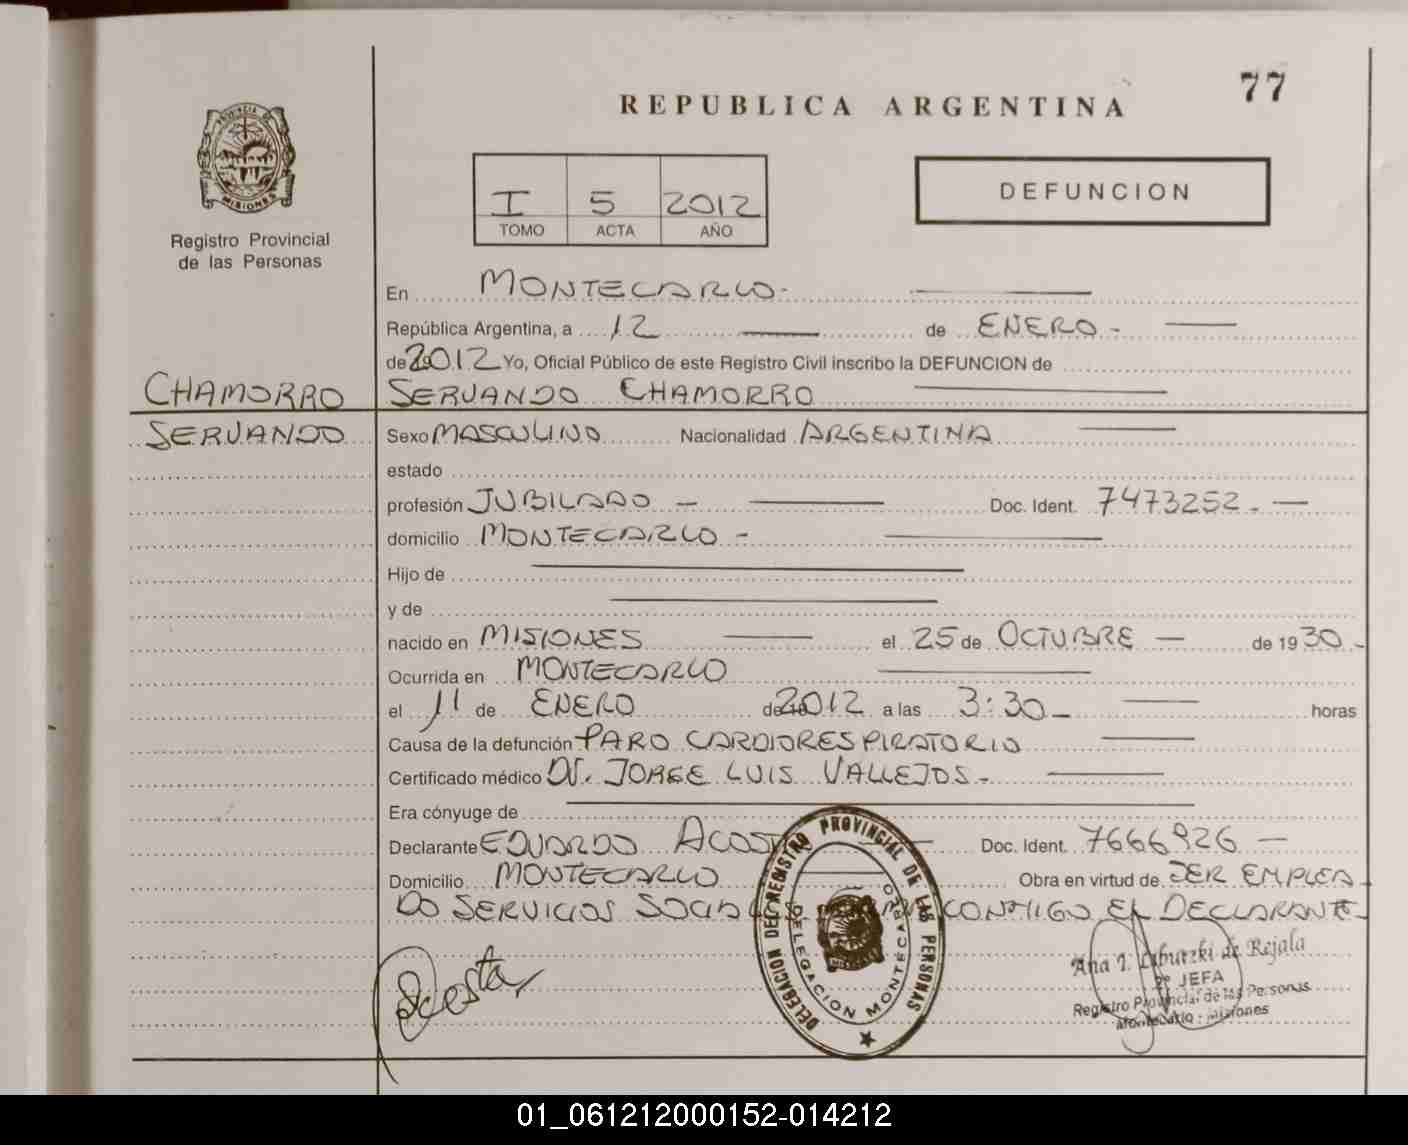 77
REPUBLICA ARGENTINA
PROVINCIA DE
MISIONES
Registro Provincial
de las Personas
I 5 2012
TOMO ACTA AÑO
DEFUNCION
En MONTECARLO.
República Argentina, a 12 de ENERO.-
de 2012 Yo, Oficial Público de este Registro Civil inscribo la DEFUNCION de
CHAMORRO SERVANDO CHAMORRO
SERVANDO Sexo MASCULINO Nacionalidad ARGENTINA
estado
profesión JUBILADO - Doc. Ident. 7473252.-
domicilio MONTECARLO -
Hijo de
y de
nacido en MISIONES el 25 de OCTUBRE - de 1930.-
Ocurrida en MONTECARLO
el 11 de ENERO de 2012 a las 3:30 - horas
Causa de la defunción PARO CARDIORESPIRATORIO
Certificado médico Dr. JORGE LUIS VALLEJOS.-
Era cónyuge de
Declarante EDUARDO ACOSTA Doc. Ident. 7666926 -
Domicilio MONTECARLO Obra en virtud de SER EMPLEA-
DO SERVICIOS CONMIGO EL DECLARANTE-
DELEGACION DEL REGISTRO PROVINCIAL DE LAS PERSONAS
DELEGACION MONTECARLO
MISIONES
Acosta
Ana I. de Rejala
2º JEFA
Registro Provincial de las Personas
Montecarlo - Misiones
01_061212000152-014212